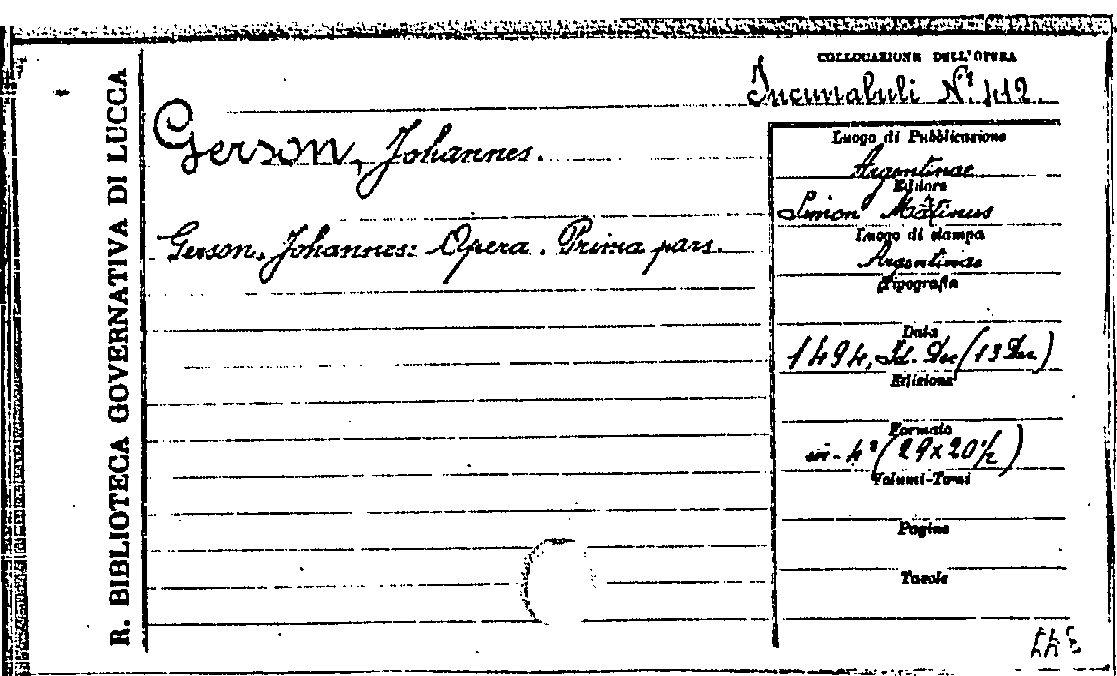 R. BIBLIOTECA GOVERNATIVA DI LUCCA
COLLOCAZIONE DELL'OPERA
Incunabuli Nº 412
Gerson, Johannes.
Gerson, Johannes: Opera. Prima pars.
Luogo di Pubblicazione
Argentinae
Editore
Simon
Luogo di stampa
Argentinae
Tipografia
Data
1494, Id. Dec (13 Dec.)
Edizione
Formato
in-4º (29x20½)
Volumi-Tomi
Pagine
Tavole